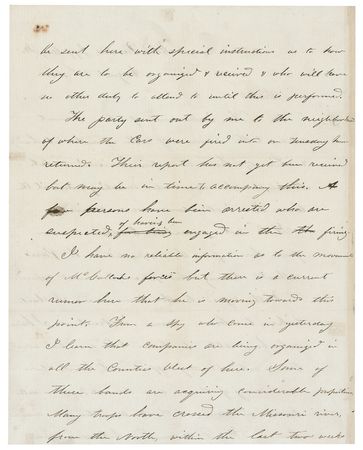 be sent here with special instructions as to how
they are to be organized & received & who will have
no other duty to attend to until this is performed.
The party sent out by me to the neighborhood
of where the Cars were fired into on Tuesday has
returned. Their report has not yet been received
but may be in time to accompany this. A
few persons have been arrested who are
of having been
suspected, for being engaged in the firing
I have no reliable information as to the movement
of McCullochs force but there is a current
rumor here that he is moving towards this
point. From a spy who came in yesterday
I learn that companies are being organized in
all the Counties West of here. Some of
these bands are acquiring considerable proportions
Many troops have crossed the Missouri river,
from the North, within the last two weeks